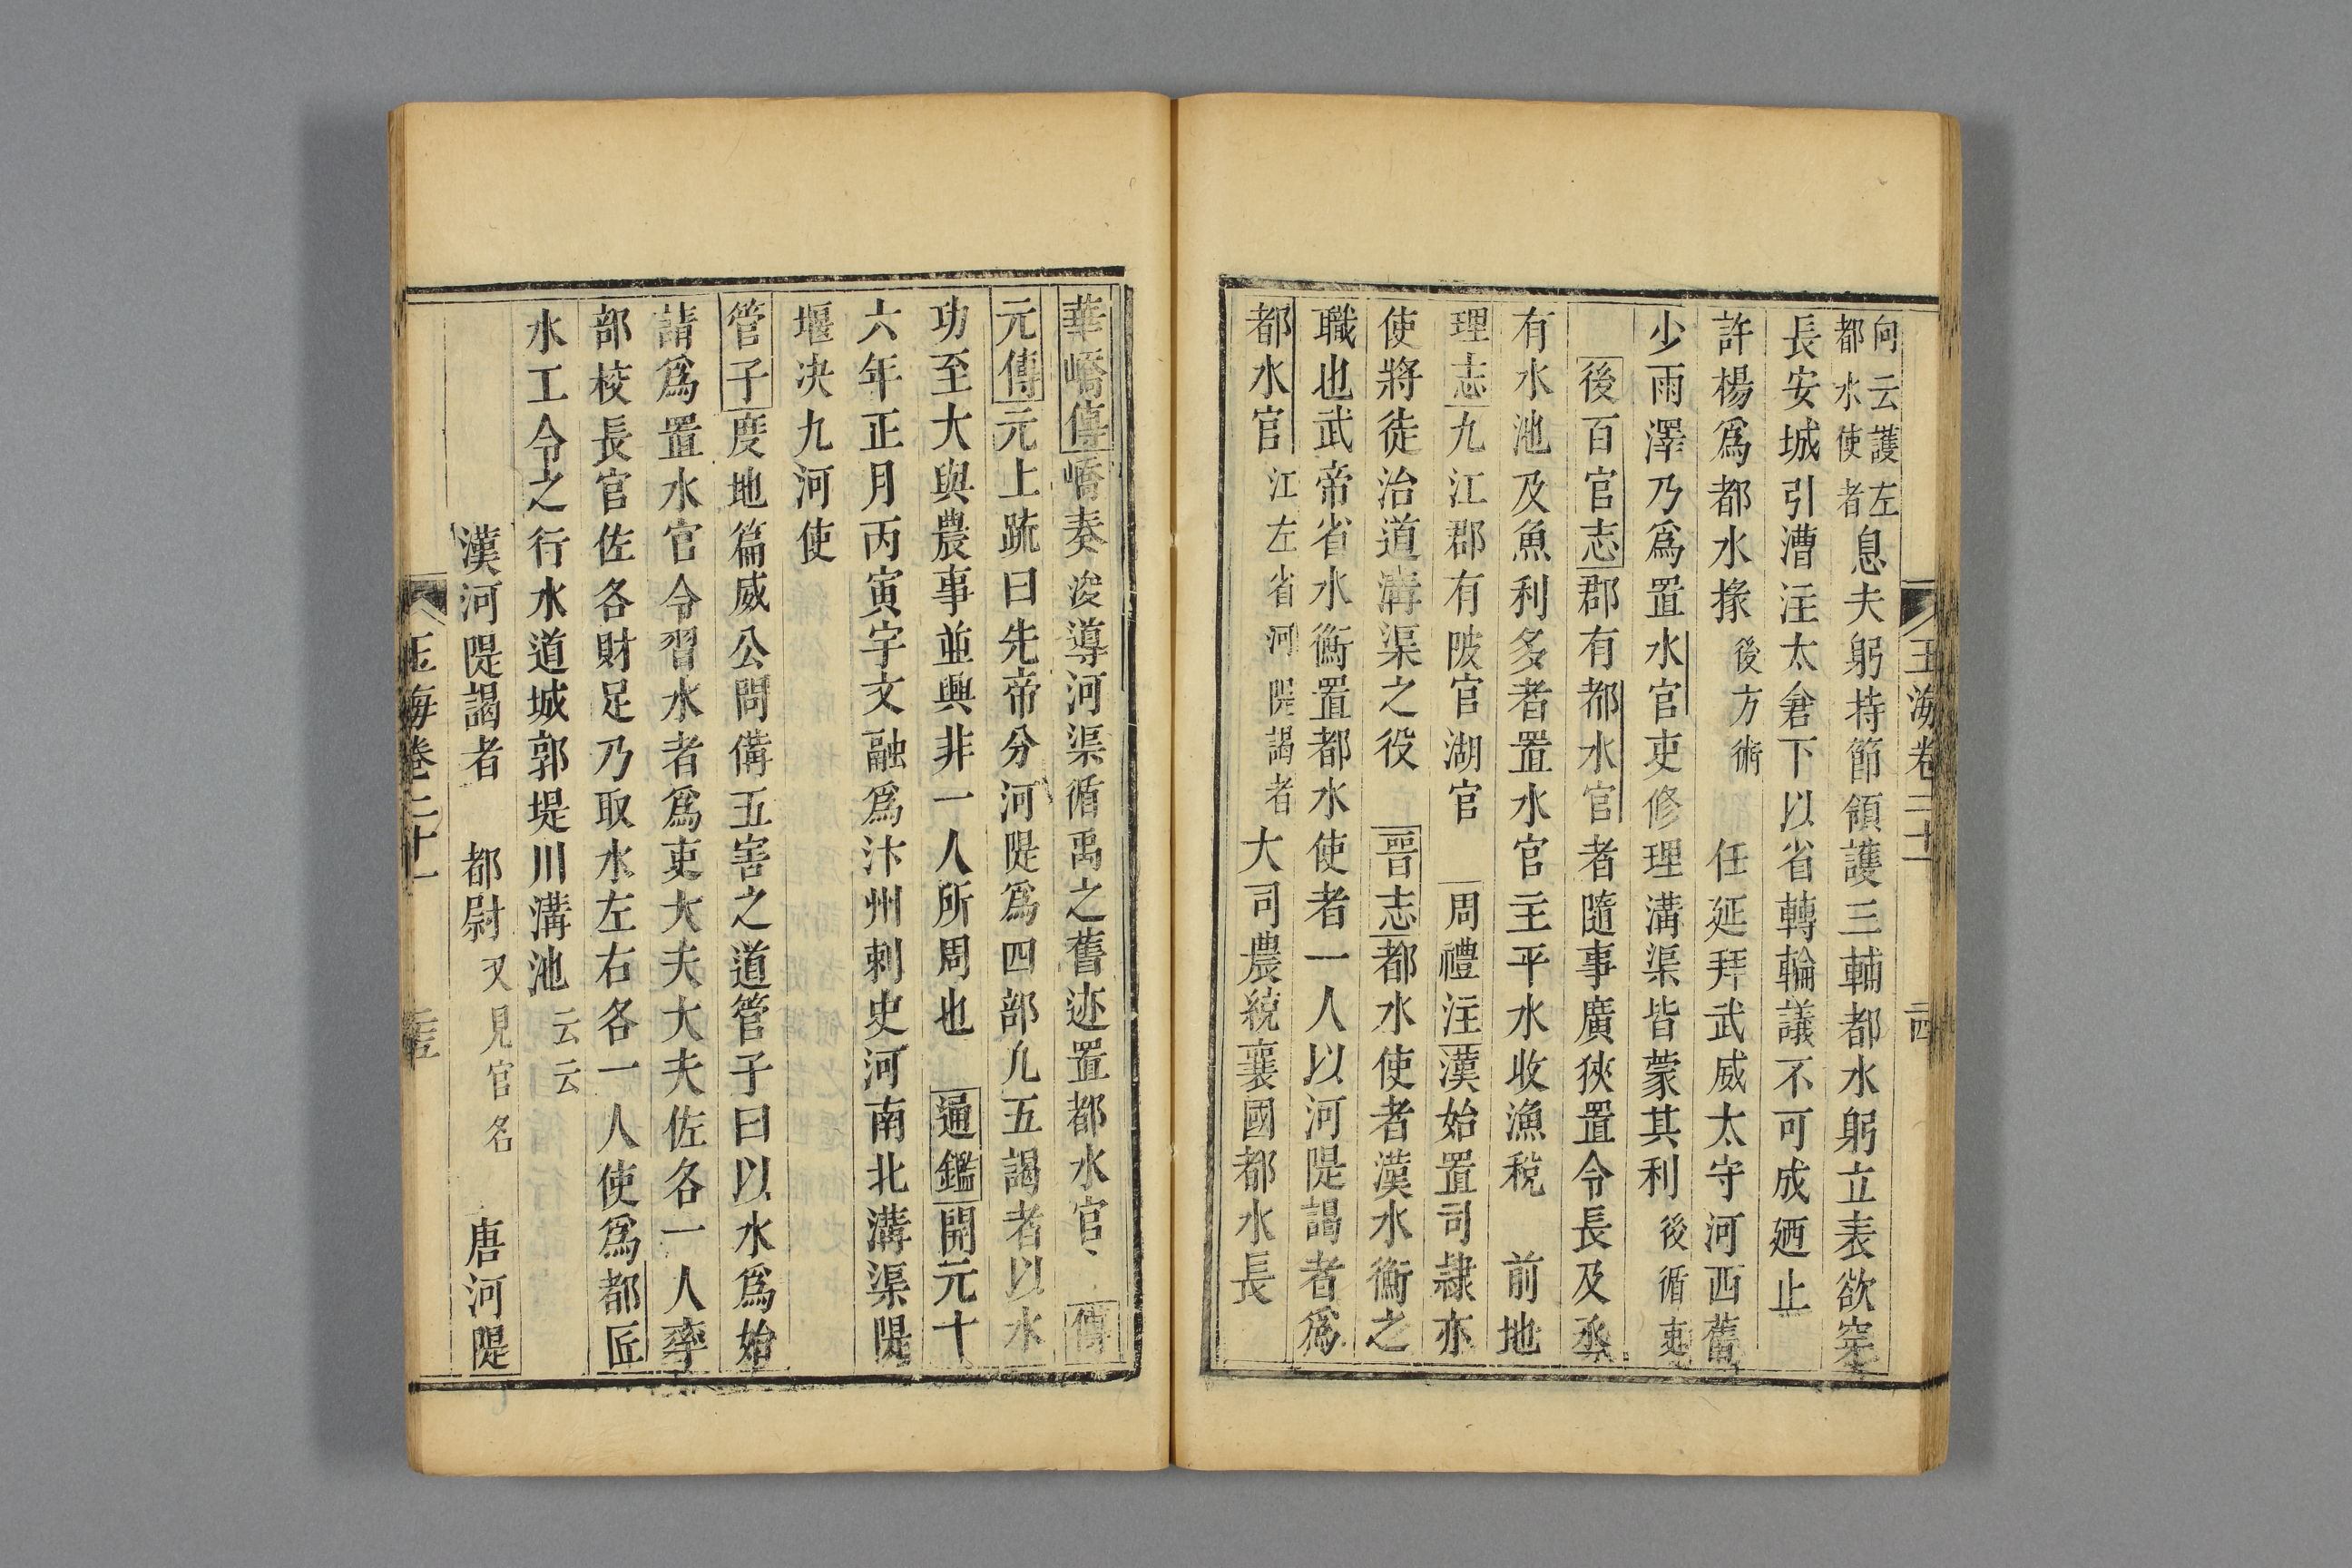 玉海卷二十一
向云護左
都水使者
息夫躬持節領護三輔都水躬立表欲穿
長安城引漕注太倉下以省轉輸議不可成廼止
許楊爲都水掾後方術 任延拜武威太守河西舊
少雨澤乃爲置水官吏修理溝渠皆蒙其利後循吏
後百官志郡有都水官者隨事廣狹置令長及丞
有水池及魚利多者置水官主平水收漁稅 前地
理志九江郡有陂官湖官 周禮注漢始置司隷亦
使將徒治道溝渠之役 晉志都水使者漢水衡之
職也武帝省水衡置都水使者一人以河隄謁者爲
都水官江左省河隄謁者 大司農統襄國都水長
華嶠傳嶠奏浚導河渠循禹之舊迹置都水官 傅
元傳元上疏曰先帝分河隄爲四部九五謁者以水
功至大與農事並興非一人所周也 通鑑開元十
六年正月丙寅宇文融爲汴州刺史河南北溝渠隄
堰決九河使
管子度地篇威公問備五害之道管子曰以水爲始
請爲置水官令習水者爲吏大夫大夫佐各一人率
部校長官佐各財足乃取水左右各一人使爲都匠
水工令之行水道城郭堤川溝池云云
漢河隄謁者 都尉又見官名 唐河隄
玉海卷二十一